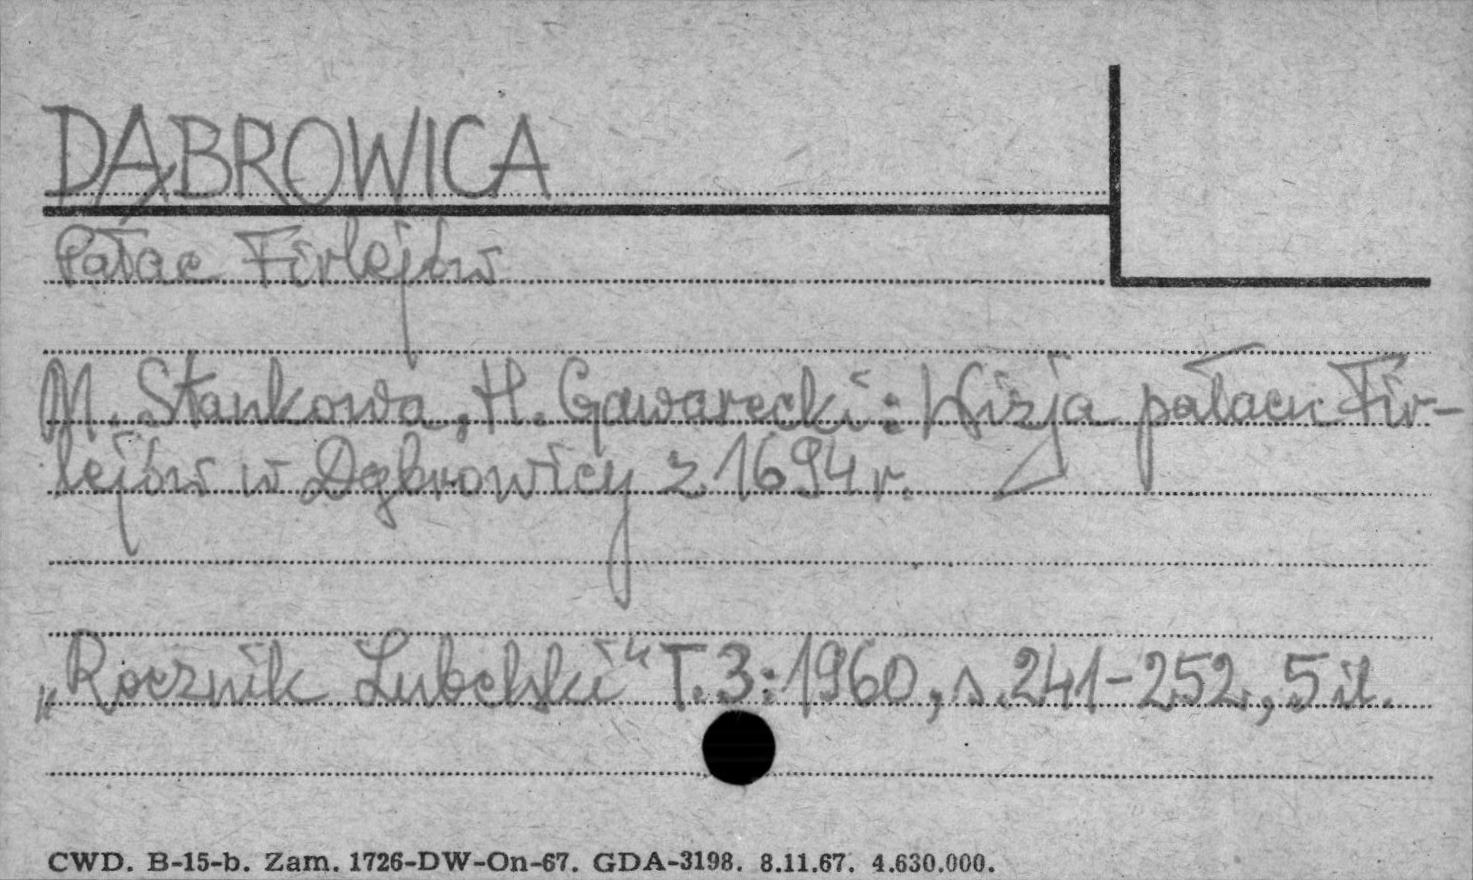 DĄBROWICA
Pałac Firlejów
M. Stankowa, H. Gawarecki: Wizja pałacu Fir-
lejów w Dąbrowicy z 1694 r.
„Rocznik Lubelski" T. 3: 1960, s. 241-252, 5 il.
CWD. B-15-b. Zam. 1726-DW-On-67. GDA-3198. 8.11.67. 4.630.000.